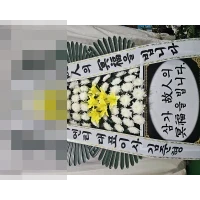 故人의 冥福을 빕니다
대표이사
삼가 故人의
冥福을 빕니다